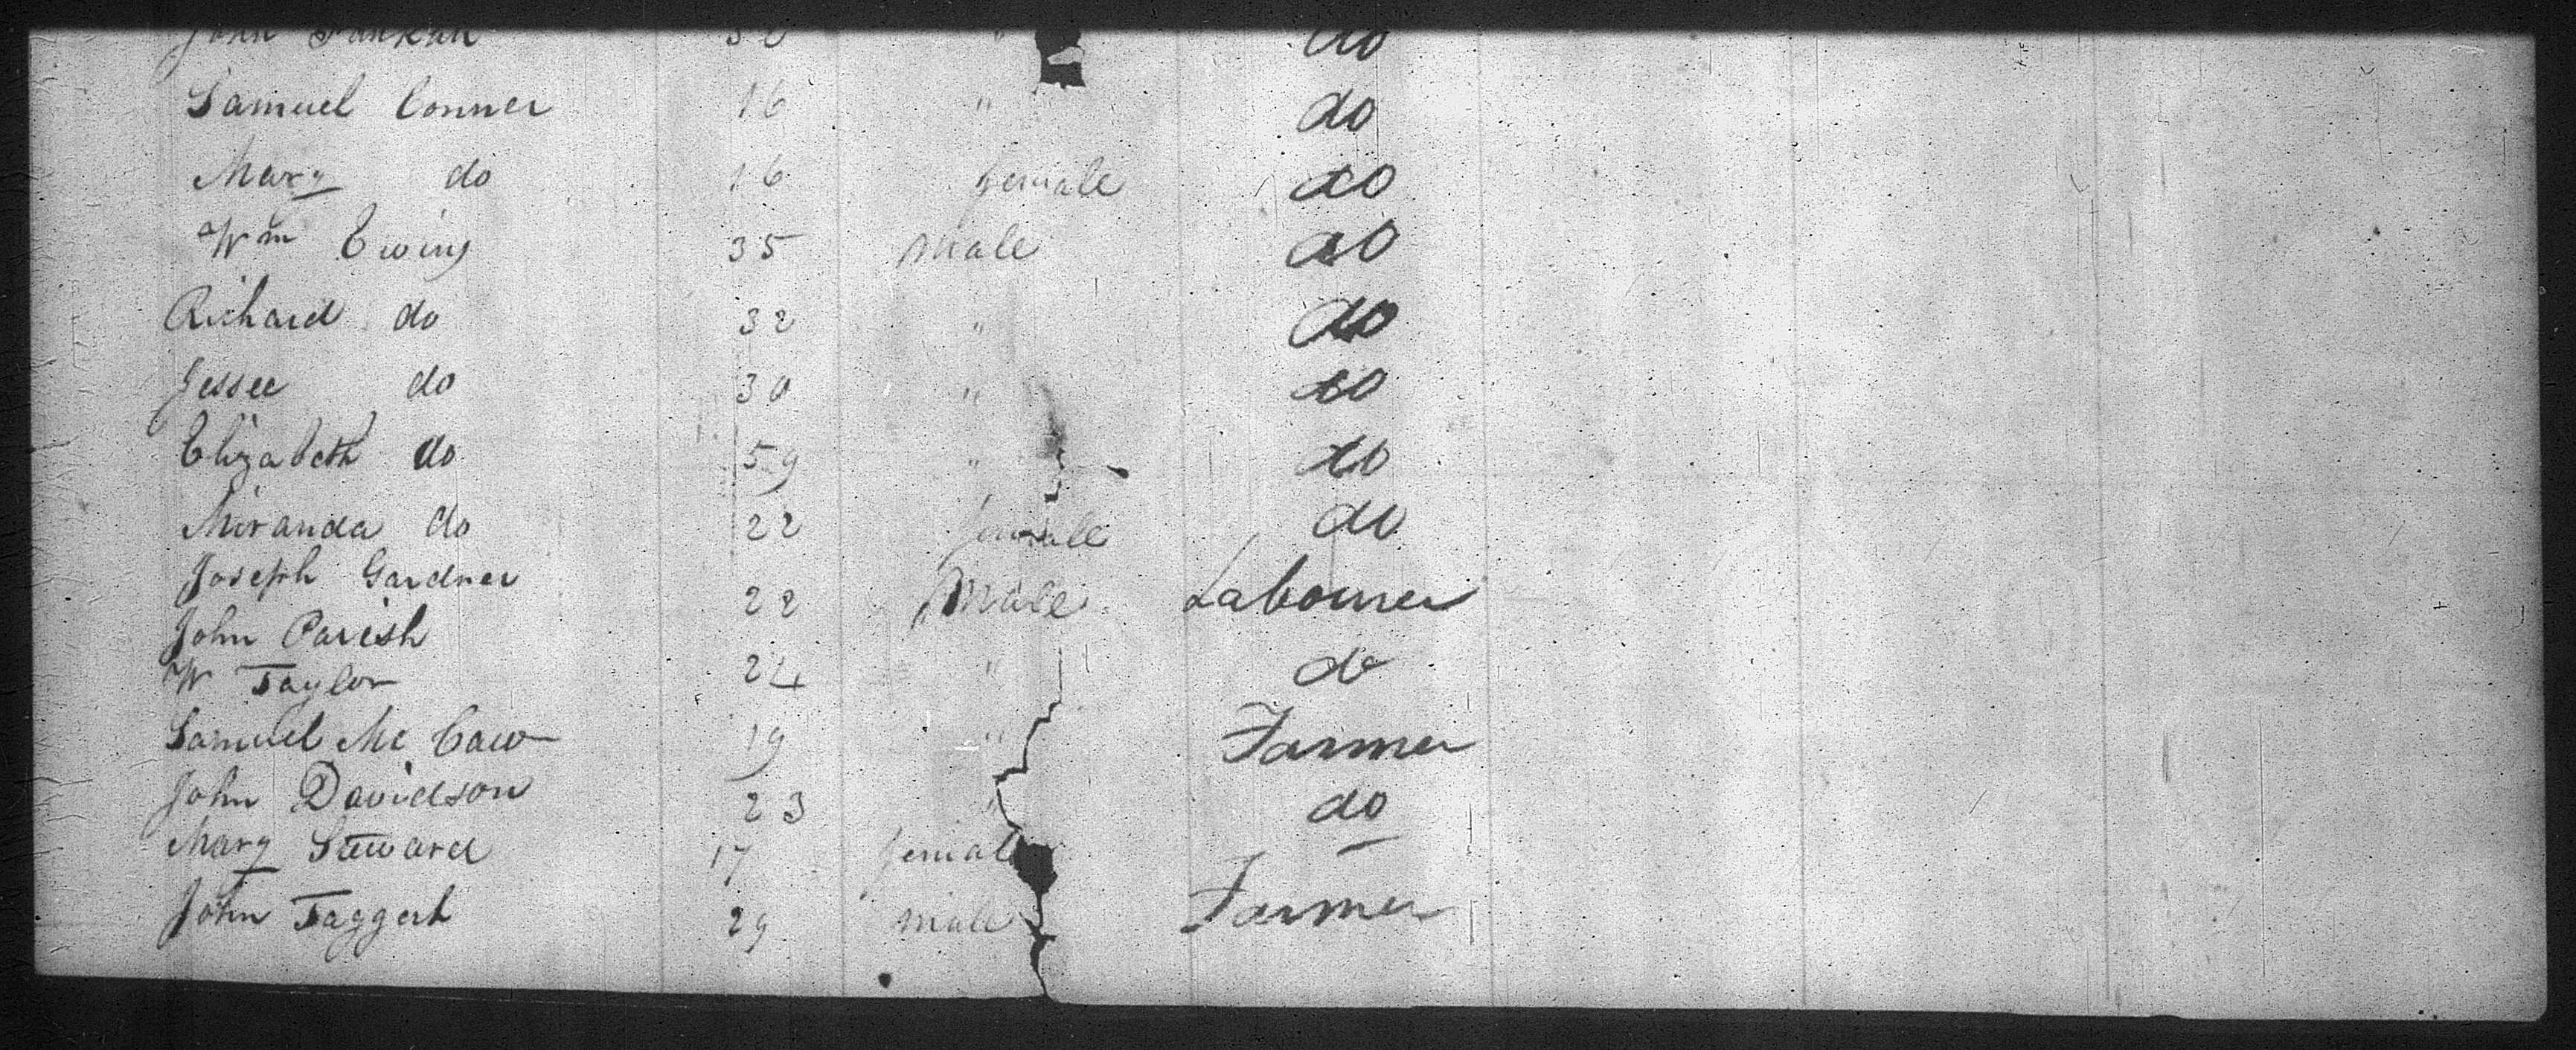 John 30 " do
Samuel Conner 16 " do
Mary do 16 female do
Wm Ewing 35 Male do
Richard do 32 " do
Jessee do 30 " do
Elizabeth do 59 " do
Miranda do 22 female do
Joseph Gardner 22 Male Labourer
John Parish
W Taylor 24 " do
Samuel Mc Caw 19 " Farmer
John Davidson 23 " do
Mary Steward 17 female —
John Taggert 29 male Farmer